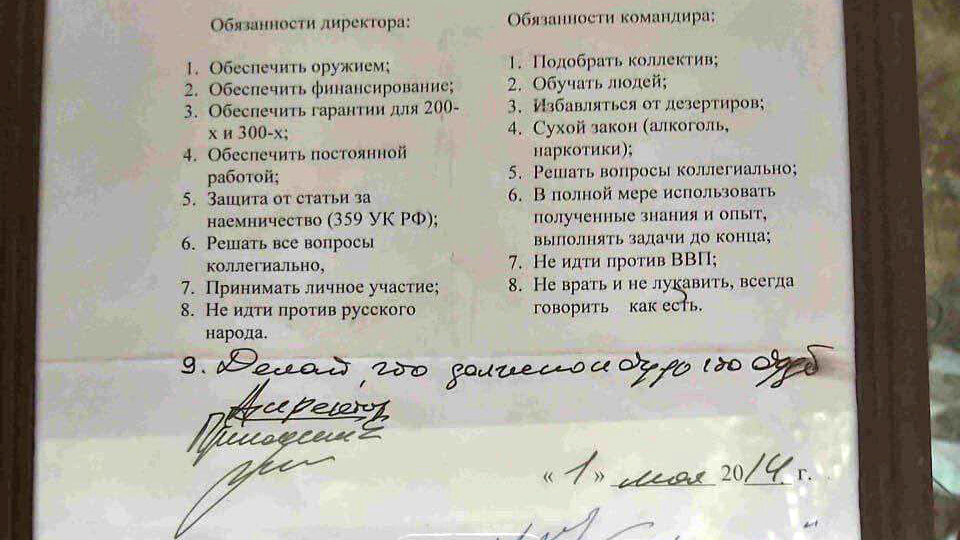 Обязанности директора:
1. Обеспечить оружием;
2. Обеспечить финансирование;
3. Обеспечить гарантии для 200-
х и 300-х;
4. Обеспечить постоянной
работой;
5. Защита от статьи за
наемничество (359 УК РФ);
6. Решать все вопросы
коллегиально,
7. Принимать личное участие;
8. Не идти против русского
народа.
Обязанности командира:
1. Подобрать коллектив;
2. Обучать людей;
3. Избавляться от дезертиров;
4. Сухой закон (алкоголь,
наркотики);
5. Решать вопросы коллегиально;
6. В полной мере использовать
полученные знания и опыт,
выполнять задачи до конца;
7. Не идти против ВВП;
8. Не врать и не лукавить, всегда
говорить как есть.
9. Делай, что должно и будь что будет
Директор
« 1 » мая 2014 г.